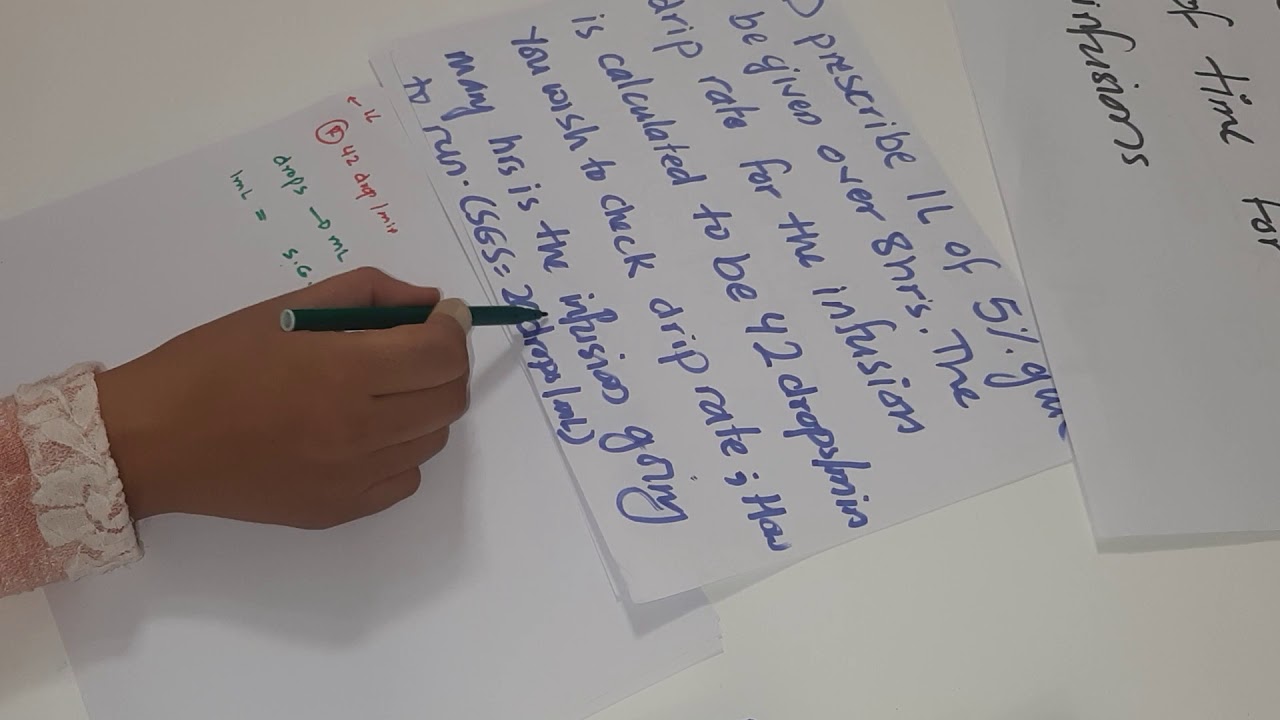 of time for
infusions
prescribe 1L of 5%. glu
be given over 8hrs. The
drip rate for the infusion
is calculated to be 42 drops/min
You wish to check drip rate; How
many hrs is the infusion going
to run. (SGS= 20drops/mL)
← 1L
42 drop/min
drops → mL
1mL =